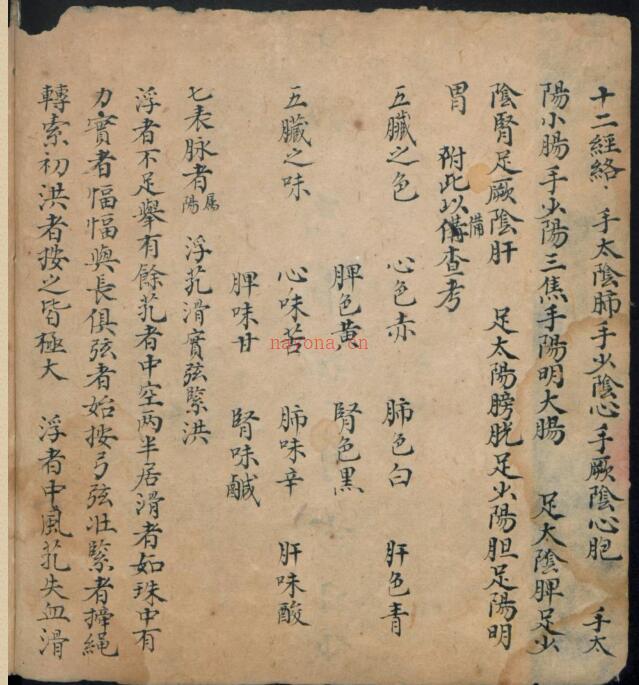 十二經絡 手太陰肺手少陰心手厥陰心胞 手太
陽小腸手少陽三焦手陽明大腸 足太陰脾足少
陰腎足厥陰肝 足太陽膀胱足少陽胆足陽明
胃 附此以備查考
備
五臟之色 心色赤 肺色白 肝色青
脾色黃 腎色黑
五臟之味 心味苦 肺味辛 肝味酸
脾味甘 腎味鹹
七表脉者屬陽 浮芤滑實弦緊洪
浮者不足舉有餘芤者中空兩半居滑者如珠中有
力實者愊愊與長俱弦者始按弓弦壯緊者繩
轉索初洪者按之皆極大 浮者中風芤失血滑
nayona.cn